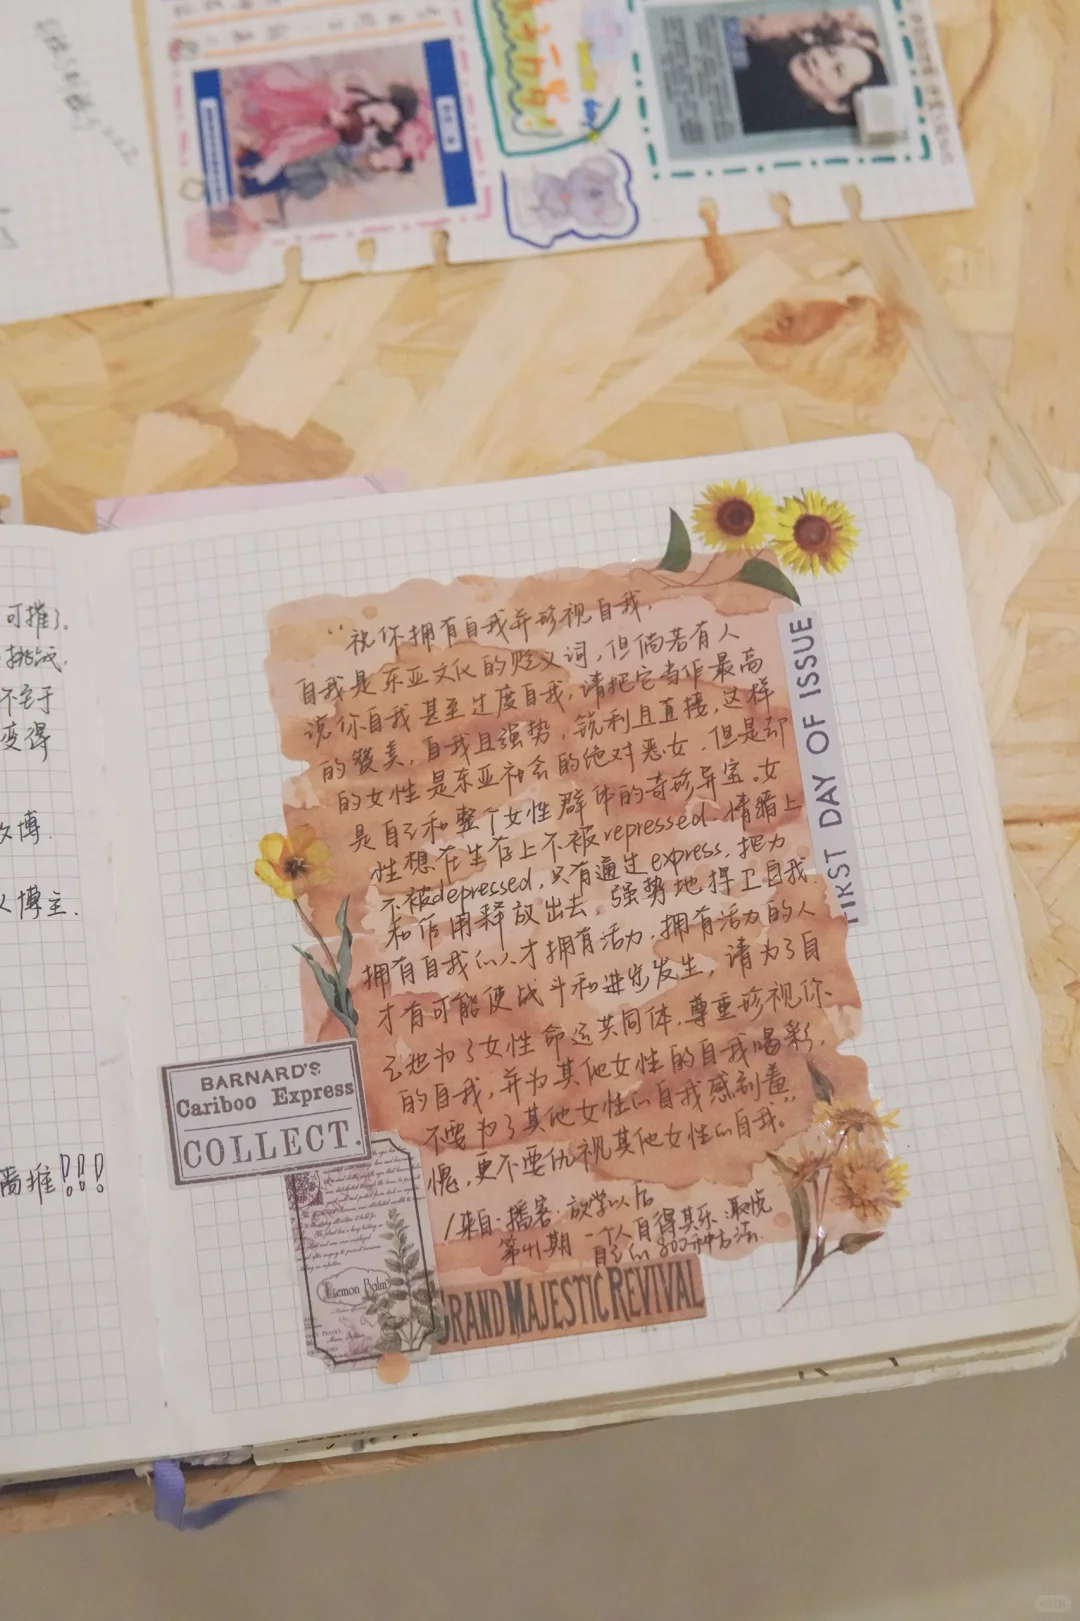 可推了.
挑战.
不至于
变得
博.
人博主.
推!!!
"祝你拥有自我并珍视自我.
自我是东亚文化的贬义词,但倘若有人
说你自我甚至过度自我,请把它当作最高
的赞美,自我且强势,锐利且直接,这样
的女性是东亚社会的绝对恶女.但是却
是自己和整个女性群体的奇珍异宝。女
性想在生存上不被repressed.情绪上
不被depressed,只有通过express,把力
和作用释放出去,强势地捍卫自我.
拥有自我的人才拥有活力.拥有活力的人
才有可能使战斗和进步发生,请为了自
己也为了女性命运共同体.尊重珍视你
的自我,并为其他女性的自我喝彩.
不要为了其他女性的自我感到羞
愧,更不要仇视其他女性的自我。"
/来自·播客·放学以后
第41期 一个人自得其乐:取悦
自己的800种方法.
FIRST DAY OF ISSUE
BARNARD'S
Cariboo Express
COLLECT.
Lemon Balm
GRAND MAJESTIC REVIVAL